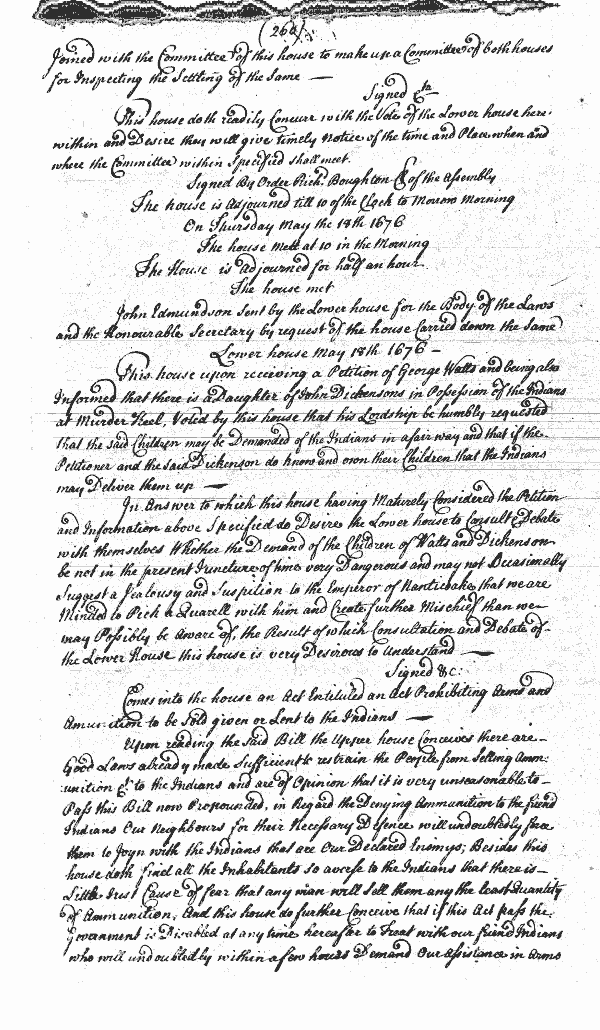 (260)
Joined with the Committee of this house to make up a Committee of both houses
for Inspecting the Settling of the Same —
Signed &ca
This house doth readily Concurr with the Vote of the Lower house here-
within and Desire they will give timely Notice of the time and Place when and
where the Committee within Specified shall meet.
Signed By Order Richd. Boughton Cl of the Assembly
The house is Adjourned till 10 of the Clock to Morrow Morning
On Thursday May the 18th 1676
The house Mett at 10 in the Morning
The House is Adjourned for half an hour
The house met
John Edmundson Sent by the Lower house for the Body of the Laws
and the Honourable Secretary by request of the house Carried down the Same
Lower house May 18th 1676 —
This house upon receiving a Petition of George Watts and being also
Informed that there is a Daughter of John Dickensons in Possession of the Indians
at Murder Keel, Voted by this house that his Lordship be humbly requested
that the said Children may be Demanded of the Indians in a fair way and that if the
Petitioner and the said Dickenson do know and own their Children that the Indians
may Deliver them up —
In Answer to which this house having Maturely Considered the Petition
and Information above Specified do Desire the Lower house to Consult & Debate
with themselves Whether the Demand of the Children of Watts and Dickenson
be not in the present Juncture of time very Dangerous and may not Occasionally
Suggest a Jealousy and Suspition to the Emperor of Nanticoke that we are
Minded to Pick a Quarell with him and Create further Mischief than we
may Possibly be Aware of, the Result of which Consultation and Debate of
the Lower House this house is very Desirous to Understand —
Signed &c:
Comes into the house an Act Entituled an Act Prohibiting Arms and
Amunition to be Sold given or Lent to the Indians —
Upon reading the Said Bill the Upper house Conceives there are
Good Laws already made Sufficient to restrain the People from Selling Amm:
unition &c. to the Indians and are of Opinion that it is very unseasonable to
Pass this Bill now Propounded, in Regard the Denying Ammunition to the friend
Indians Our Neighbours for their Necessary Defence will undoubtedly force
them to Joyn with the Indians that are Our Declared Enemys; Besides this
house doth find all the Inhabitants so averse to the Indians that there is
Little Just Cause of fear that any man will Sell them any the least Quantity
of Ammunition, And this house do further Conceive that if this Act pass the
Government is Disabled at any time hereafter to Treat with our friend Indians
who will undoubtedly within a few hours Demand Our Assistance in Arms